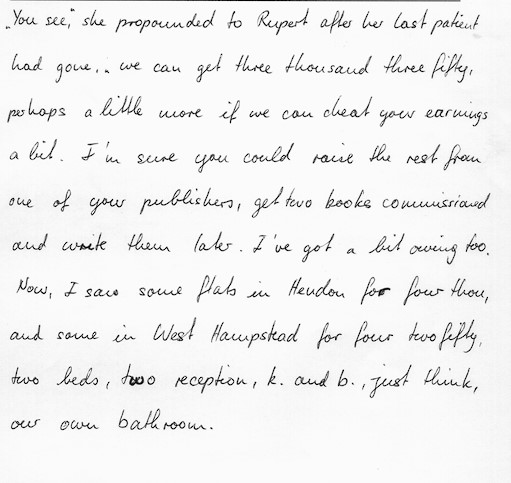 „You see," she propounded to Rupert after her last patient
had gone, „we can get three thousand three fifty,
perhaps a little more if we can cheat your earnings
a bit. I'm sure you could raise the rest from
one of your publishers, get two books commissioned
and write them later. I've got a bit owing too.
Now, I saw some flats in Hendon for four thou,
and some in West Hampstead for four two fifty,
two beds, two reception, k. and b., just think,
our own bathroom.